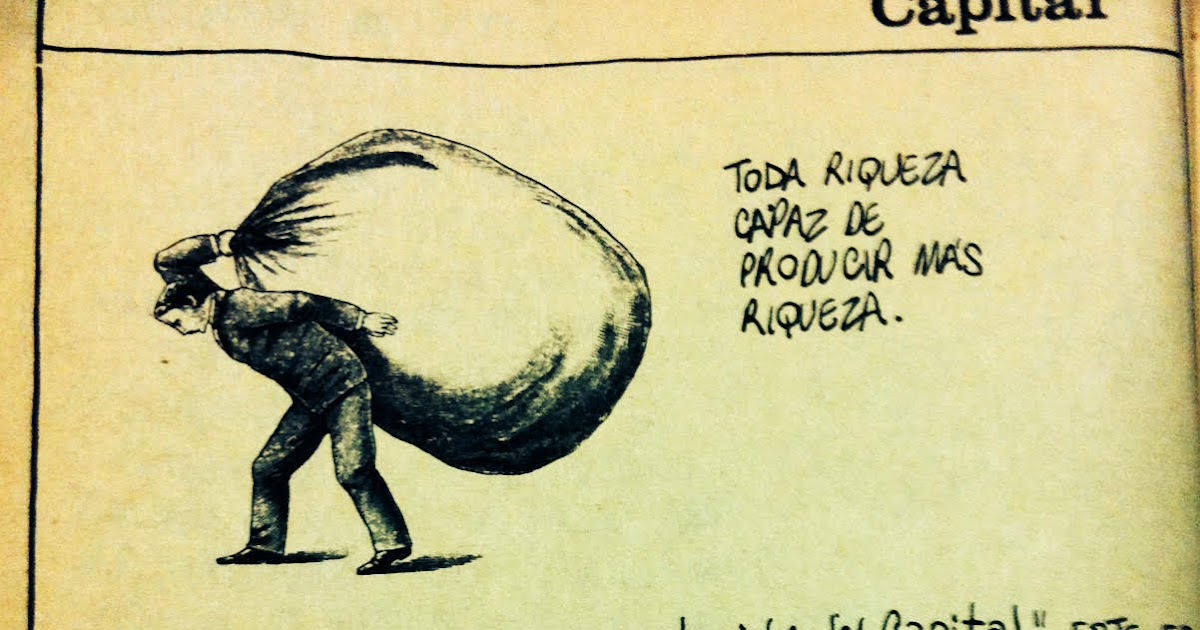 Capital
TODA RIQUEZA
CAPAZ DE
PRODUCIR MÁS
RIQUEZA.
Capital" ESTE